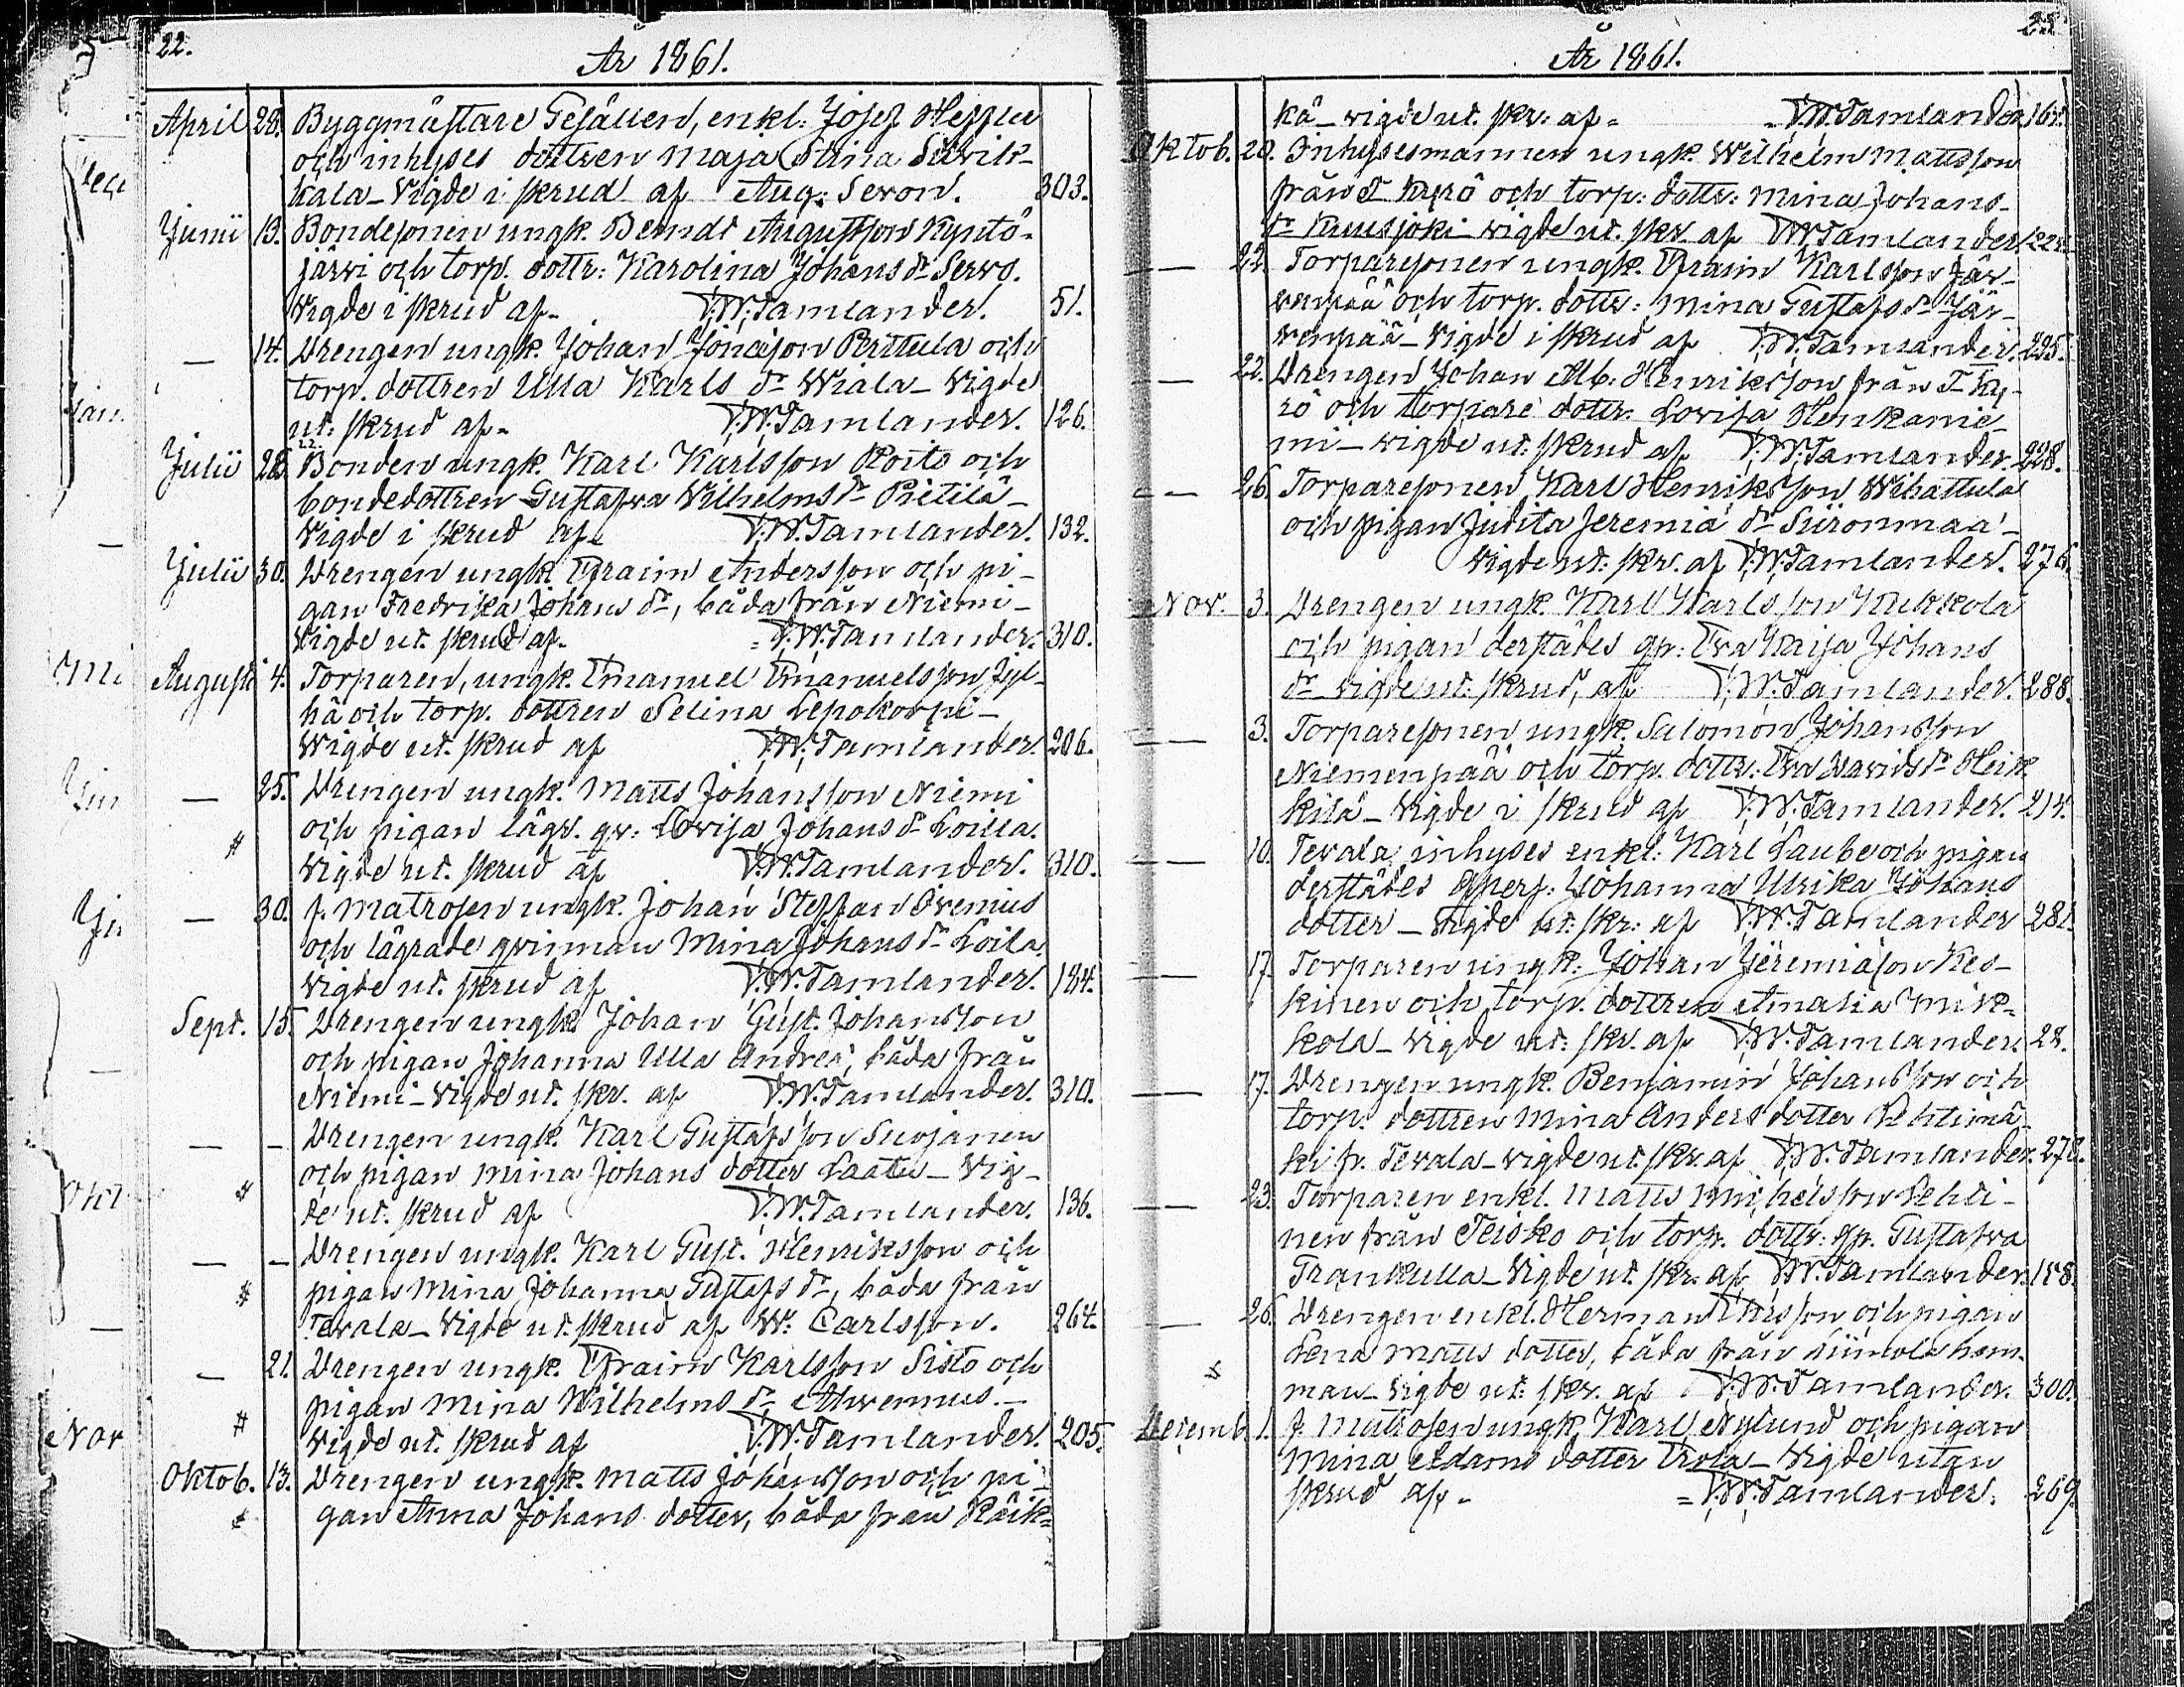 22.
År 1861.
April 28. Byggmästare Gesällen, enkl: Josef Heppu
och inhyses dottren Maja Stina Suvik-
kala_ Vigde i skrud af Aug: Sevon. 303.
Junii 13. Bondesonen ungk. Berndt Augustsson Kyntö-
järvi och torp. dottr: Karolina Johans dr Servo.
Vigde i skrud af- F.W. Tamlander. 51.
— 14. Drengen ungk. Johan Jonasson Perttula och
torp. dottren Ulla Karls dr Wiala_ Vigde
ut: skrud af- F.W. Tamlander. 126.
Julii 28. Bonden ungk. Karl Karlsson Roito och
bondedottren Gustafva Vilhelms dr Pietilä_
Vigde i skrud af- F.W. Tamlander. 132.
Julii 30. Drengen ungk. Efraim Andersson och pi-
gan Fredrika Johans dr, båda från Niemi_
Vigde ut. skrud af- F.W. Tamlander. 310.
Augusti 4. Torparen, ungk. Emanuel Emanuelsson Jyl-
hä och torp. dottren Selina Lepokorpi_
Wigde ut. skrud af F.W. Tamlander. 206.
— 25. Drengen ungk. Matts Johansson Niemi
och pigan lägr. qv: Lovisa Johans dr Loilla.
Vigde ut. skrud af F.W. Tamlander. 310.
— 30. f. Matrosen ungk. Johan Steffan Ovenius
och lägrade qvinnan Mina Johans dr Loila.
Vigde ut. skrud af F.W. Tamlander. 184.
Sept. 15. Drengen ungk. Johan Gust. Johansson
och pigan Johanna Ulla Andrea, båda från
Niemi_ Vigde ut. skr. af F.W. Tamlander. 310.
— — Drengen ungk. Karl Gustafsson Suojanen
och pigan Mina Johans dotter Laatu_ Vig-
de ut. skrud af F.W. Tamlander. 136.
— — Drengen ungk. Karl Gust. Henriksson och
pigan Mina Johanna Gustafs dr, båda från
Tevala_ Vigde ut. skrud af W. Carlsson. 264.
— 21. Drengen ungk. Efraim Karlsson Sisto och
pigan Mina Wilhelms dr Ahvennus._
Vigde ut. skrud af F.W. Tamlander. 205.
Oktob. 13. Drengen ungk. Matts Johansson och pi-
gan Anna Johans dotter, båda från Räik-
År 1861.
kä_ vigde ut. skr: af- F.W. Tamlander,
Oktob. 20. Inhysesmannen ungk. Wilhelm Mattsson
från T Kyrö och torp: dottr: Mina Johans-
dr Kuusjoki_ vigde ut. skr. af F.W. Tamlander
— 22. Torparesonen ungk. Efraim Karlsson Jär-
venpää och torp. dottr: Mina Gustafs dr Jär-
venpää_ Vigde i skrud af F.W. Tamlander. 225.
— 22. Drengen Johan Alb. Henriksson från T Ky-
rö och torpare dottr. Lovisa Henkanie-
mi_ vigde ut: skrud af F.W. Tamlander. 228.
— 26. Torparesonen Karl Henriksson Wihattula
och pigan Judita Jeremiä dr Siironmaa_
Vigde ut: skr. af F.W. Tamlander. 276.
Nov. 3. Drengen ungk. Karl Karlsson Kukkola
och pigan derstädes qv: Eva Kaisa Johans
dr_ Vigde ut. skrud, af F.W. Tamlander. 288.
— 3. Torparesonen ungk. Salomon Johansson
Niemenpää och torp. dottr: Eva Davids dr Heik-
kilä_ Vigde i skrud af F.W. Tamlander. 214.
— 10. Tevala inhyses enkl: Karl Laube och pigan
derstädes Johanna Ulrika Johans
dotter_ Vigde ut: skr: af F.W. Tamlander 281.
— 17. Torparen ungk: Johan Jeremiäson Kes-
kinen och torp. dottren Amalia Mik-
kola_ Vigde ut: skr. af F.W. Tamlander. 28.
— 17. Drengen ungk. Benjamin Johansson och
torp. dottren Mina Anders dotter Lehtimä-
ki fr. Tevala_ vigde ut. skr. af F.W. Tamlander. 278.
— 23. Torparen enkl. Matts Michelsson Lehti-
nen från Teisko och torp. dottr: qv. Gustafva
Frankulla_ Vigde ut. skr. af F.W. Tamlander. 158.
— 26. Drengen enkl. Herman och pigan
Lena Matts dotter, båda från hem-
man_ Vigde ut: skr. af F.W. Tamlander. 300.
Decemb. 1. f Matrosen ungk. Karl Nylund och pigan
Mina Adams dotter Erola_ Vigde utan
skrud af- F.W. Tamlander. 269.